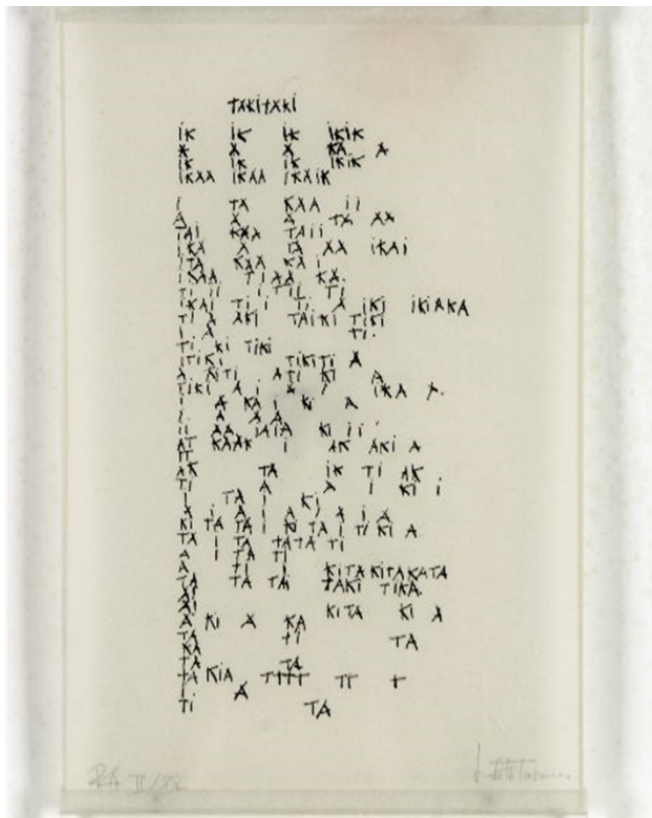 TAKITAKI
IK IK IK IKIK
A A A KA. A
IK IK IK IKIK
IKAA IKAA IKAIK
I TA KAA II
A A A TA AA
TAI KAA TAII
IKA A TA AA IKAI
ITA KAA KA I
IKAA TIAA KA.
TI II ITII TI
IKAI TI I TI A IKI IKIAKA
TI A AKI TAIKI TIKI
I A TI.
TI KI TIKI
ITIKI TIKITI A
A KITI ATI KI A
TIKI A I A I IKA A.
I A KA I KI A
I A A A
II AA IAIA KI II
AT KAAK I AK AKI A
AK TA IK TI AK
TI A A I KI I
I TA I KI
A I A I A A I A
KI TA TA I KI TA I TI KI A
TA I TA TATA TI
A I TA TI
A I I KITAKITAKATA
TA TA TAI TAKI TIKA.
AI KITA KI A
A KI A KA
TA TI TA
KA
TA TA
TA KIA TTTT TT T
I A
TI TA